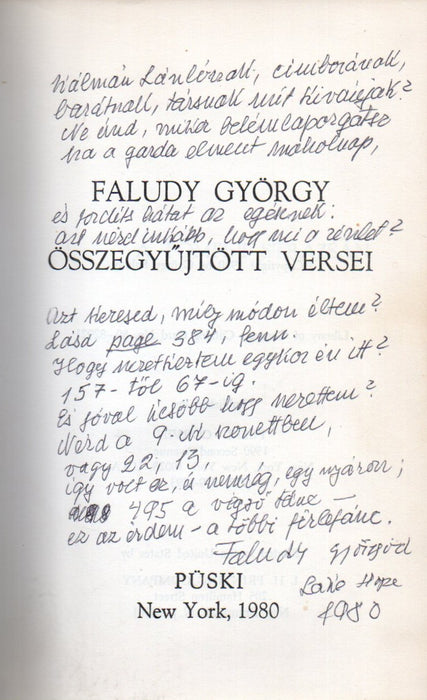 Kálmán Lászlónak, cimborának,
barátnak, társnak mit kívánjak?
Ne únd, mikor belém lapozgatsz
ha a garda elment máholnap,
FALUDY GYÖRGY
és fordíts hátat az egéknek:
azt nézd inkább, hogy mi a részlet?
ÖSSZEGYŰJTÖTT VERSEI
Azt keresed, mily módon éltem?
Lásd page 384, fenn.
Hogy nevethettem egykor én itt?
157-től 67-ig.
És jóval később hogy nevettem?
Nézd a 9-ik szonettben,
vagy 22, 13,
így volt ez, s nemrég, egy nyáron;
495 a végső tánc —
ez az érdem – a többi firlefánc.
Faludy György
PÜSKI
Lake Hope
New York, 1980
1980